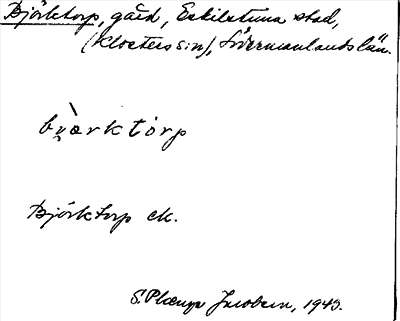 Björktorp, gård, Eskilstuna stad,
(Klosters sn), Södermanlands län.
bi̯àrktórp
Björktorp ek.
S. Jacobsen, 1943.